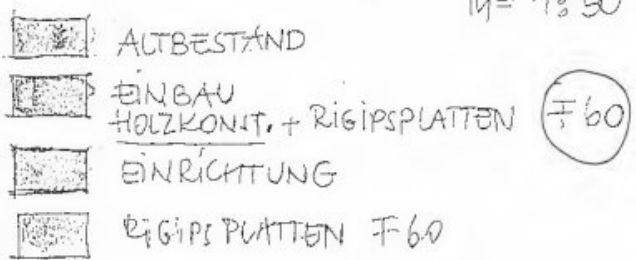 M= 1:50
ALTBESTAND
EINBAU
HOLZKONST. + RIGIPSPLATTEN F60
EINRICHTUNG
RIGIPS PLATTEN F60